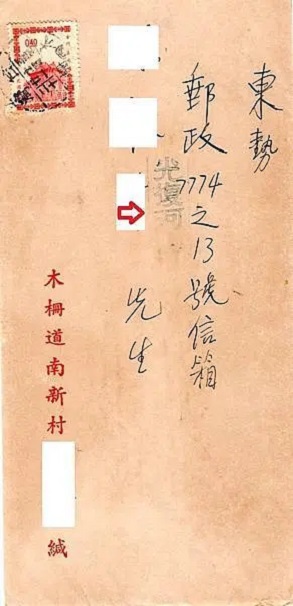 東勢
郵政7774之13號信箱
先生
光復
木柵道南新村
緘
0.40